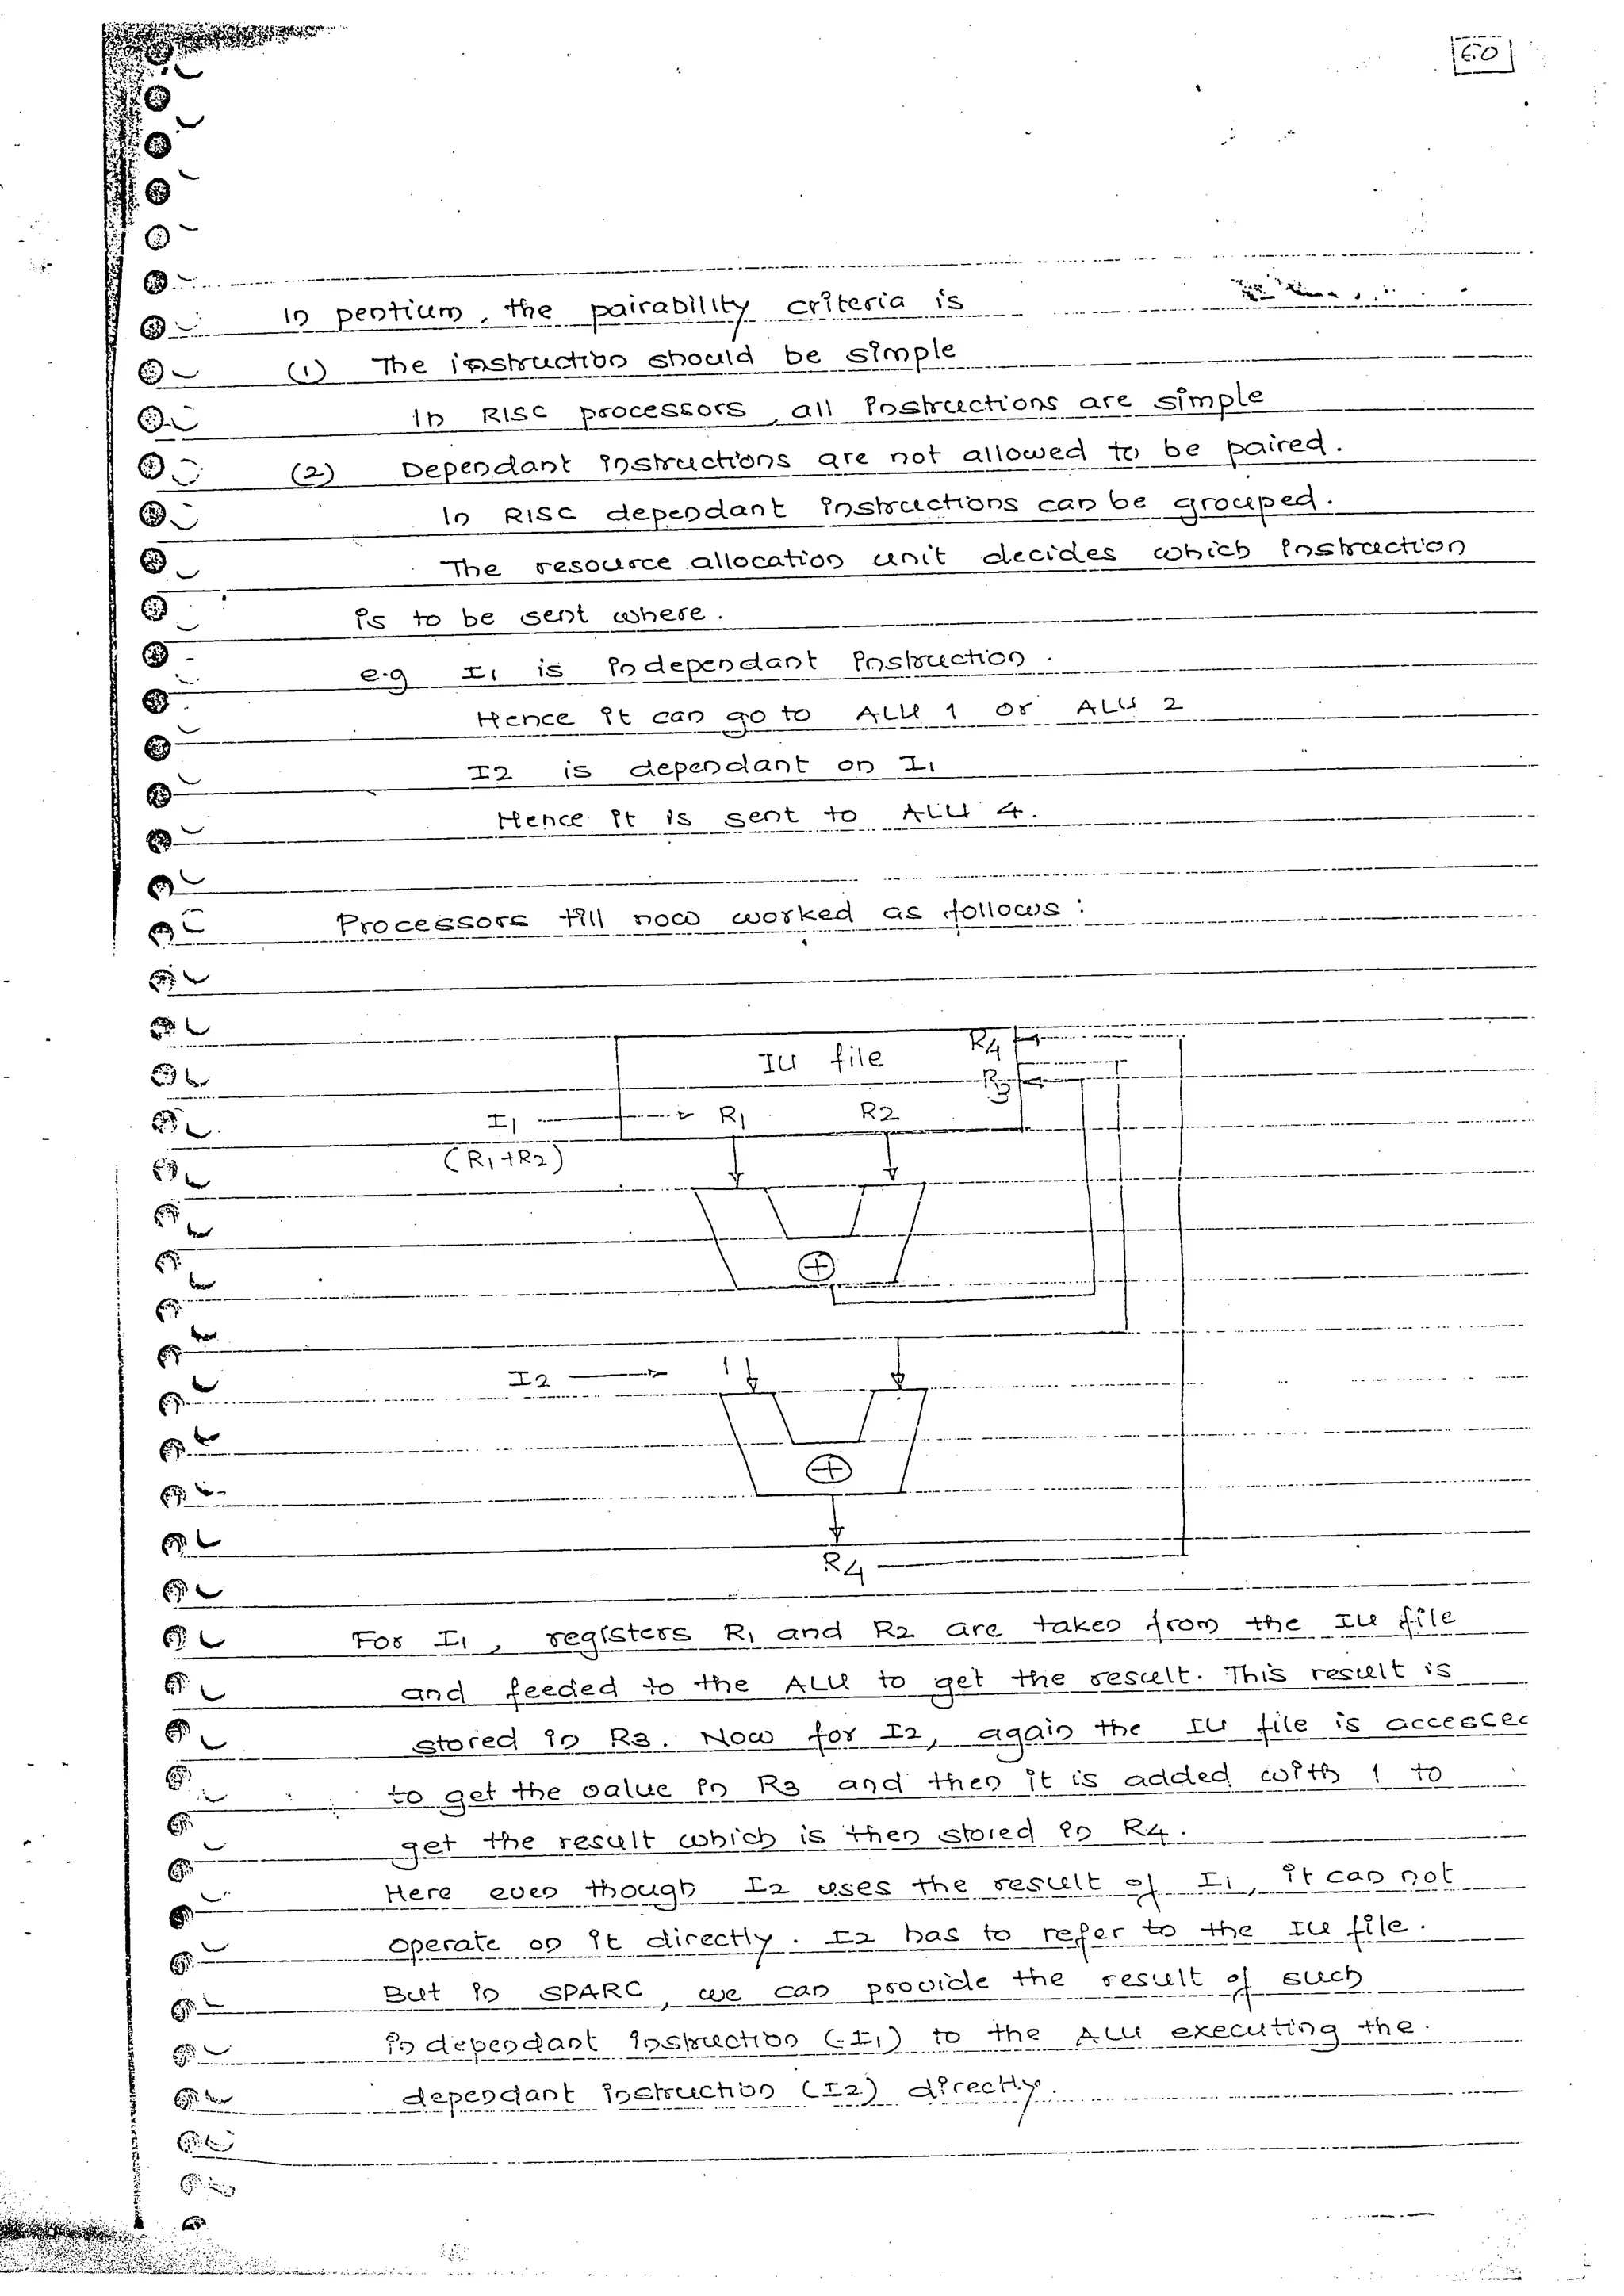 60
In pentium, the pairability criteria is
(1) The instruction should be simple
In RISC processors, all instructions are simple
(2) Dependant instructions are not allowed to be paired.
In RISC dependant instructions can be grouped.
The resource allocation unit decides which instruction
is to be sent where.
e.g I1 is independant instruction.
Hence it can go to ALU 1 or ALU 2
I2 is dependant on I1
Hence it is sent to ALU 4.
Processors till now worked as follows:
IU file R4
R3
I1 R1 R2
(R1+R2)
+
I2 1
+
R4
For I1, registers R1 and R2 are taken from the IU file
and feeded to the ALU to get the result. This result is
stored in R3. Now for I2, again the IU file is accessed
to get the value in R3 and then it is added with 1 to
get the result which is then stored in R4.
Here even though I2 uses the result of I1, it can not
operate on it directly. I2 has to refer to the IU file.
But in SPARC, we can provide the result of such
independant instruction (I1) to the ALU executing the
dependant instruction (I2) directly.